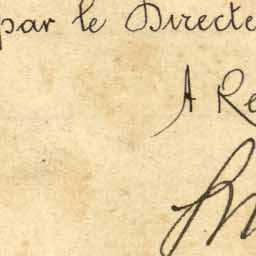 par le Directe
A Re